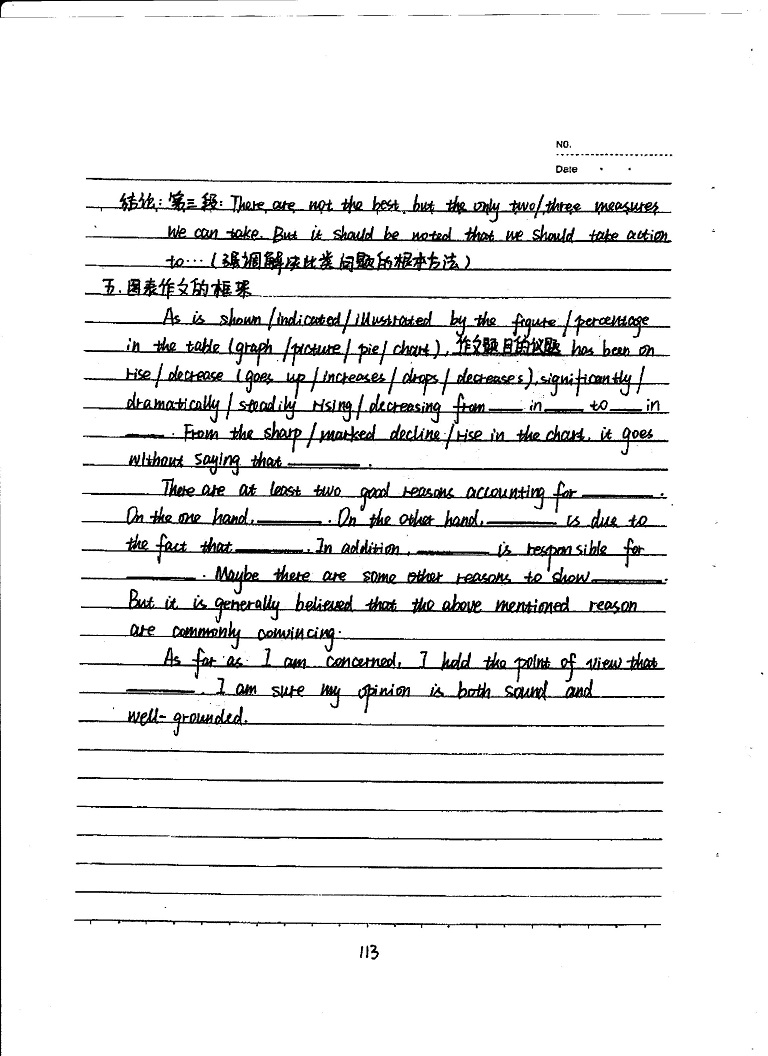 NO.
Date
结论:第三段: There are not the best, but the only two/three measures
We can take. But it should be noted that we should take action
to…(强调解决此类问题的根本方法)
五.图表作文的框架
As is shown/indicated/illustrated by the figure/percentage
in the table (graph/picture/pie/chart), 作文题目的议题 has been on
rise/decrease (goes up/increases/drops/decreases), significantly/
dramatically/steadily rising/decreasing from ____ in ____ to ____ in
____. From the sharp/marked decline/rise in the chart, it goes
without saying that ____.
There are at least two good reasons accounting for ____.
On the one hand, ____. On the other hand, ____ is due to
the fact that ____. In addition, ____ is responsible for
____. Maybe there are some other reasons to show ____.
But it is generally believed that the above mentioned reason
are commonly convincing.
As far as I am concerned, I hold the point of view that
____. I am sure my opinion is both sound and
well-grounded.
113